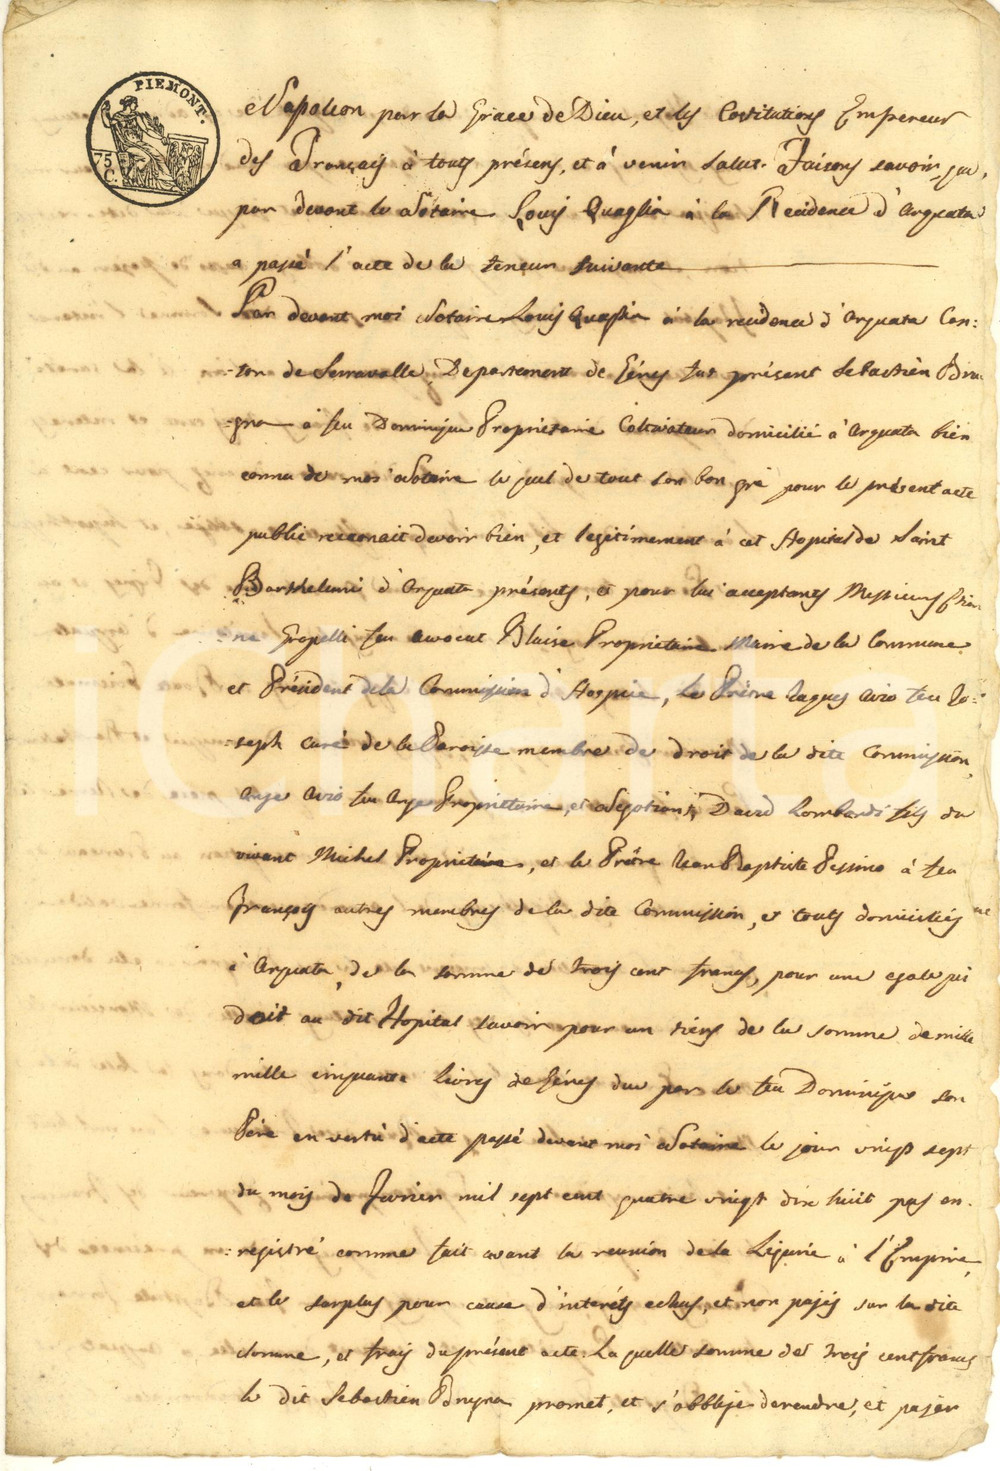 PIEMONT.
75 C.
Napoleon par la Grace de Dieu, et les Costitutions Empereur
des Français à touts présens, et à venir Salut. Faisons savoir, que,
par devant le Notaire Louis Quaglia à la Residence d'Arquata
a passé l'acte de la teneur suivante
Par devant moi Notaire Louis Quaglia à la residence d'Arquata Can:
:ton de Serravalle, Departement de Génes fut présent Sebastien Bru
:gna à feu Dominique Propriétaire Coltivateur domicilié à Arquata bien
connu de moi Notaire le quel de tout son bon gré pour le présent acte
public reconait devoir bien, et legitimement à cet Hopital de Saint
Barthelemi d'Arquata présents, et pour lui acceptants Messieurs Etien
ne feu avocat Blaise Propriétaire Maire de la Commune
et Président de la Commission d'Hospice, le Prêtre Jaques Avio feu Jo:
:seph curé de la Paroisse membre de droit de la dite Commission,
Ange Avio feu Ange Propriétaire, et Négotiant, David Lombardi fils du
vivant Michel Propriétaire, et le Prêtre Jean Baptiste Pessino à feu
François autres membres de la dite Commission, et touts domiciliés
à Arquata, de la somme de trois cent francs, pour une egale qui
doit au dit Hopital savoir pour un tiers de la somme de mille
mille cinquante livres de Génes due par le feu Dominique son
Père en vertù d'acte passé devant moi Notaire le jour vingt sept
du mois de Fevrier mil sept cent quatre vingt dix huit pas en.
:registré comme fait avant la reunion de la Ligurie à l'Empire,
et le surplus pour cause d'interéts echus, et non pajés sur la dite
somme, et frais du présent acte: La quelle somme de trois cent francs
le dit Sebastien Brugna promet, et s'obblije de rendre, et pajer